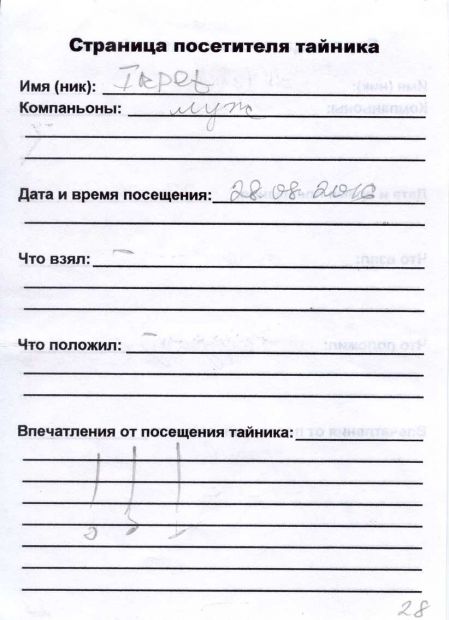 Страница посетителя тайника
Имя (ник):
Компаньоны: муж
Дата и время посещения: 28.08.2016
Что взял: –
Что положил: –
Впечатления от посещения тайника:
!!!
28